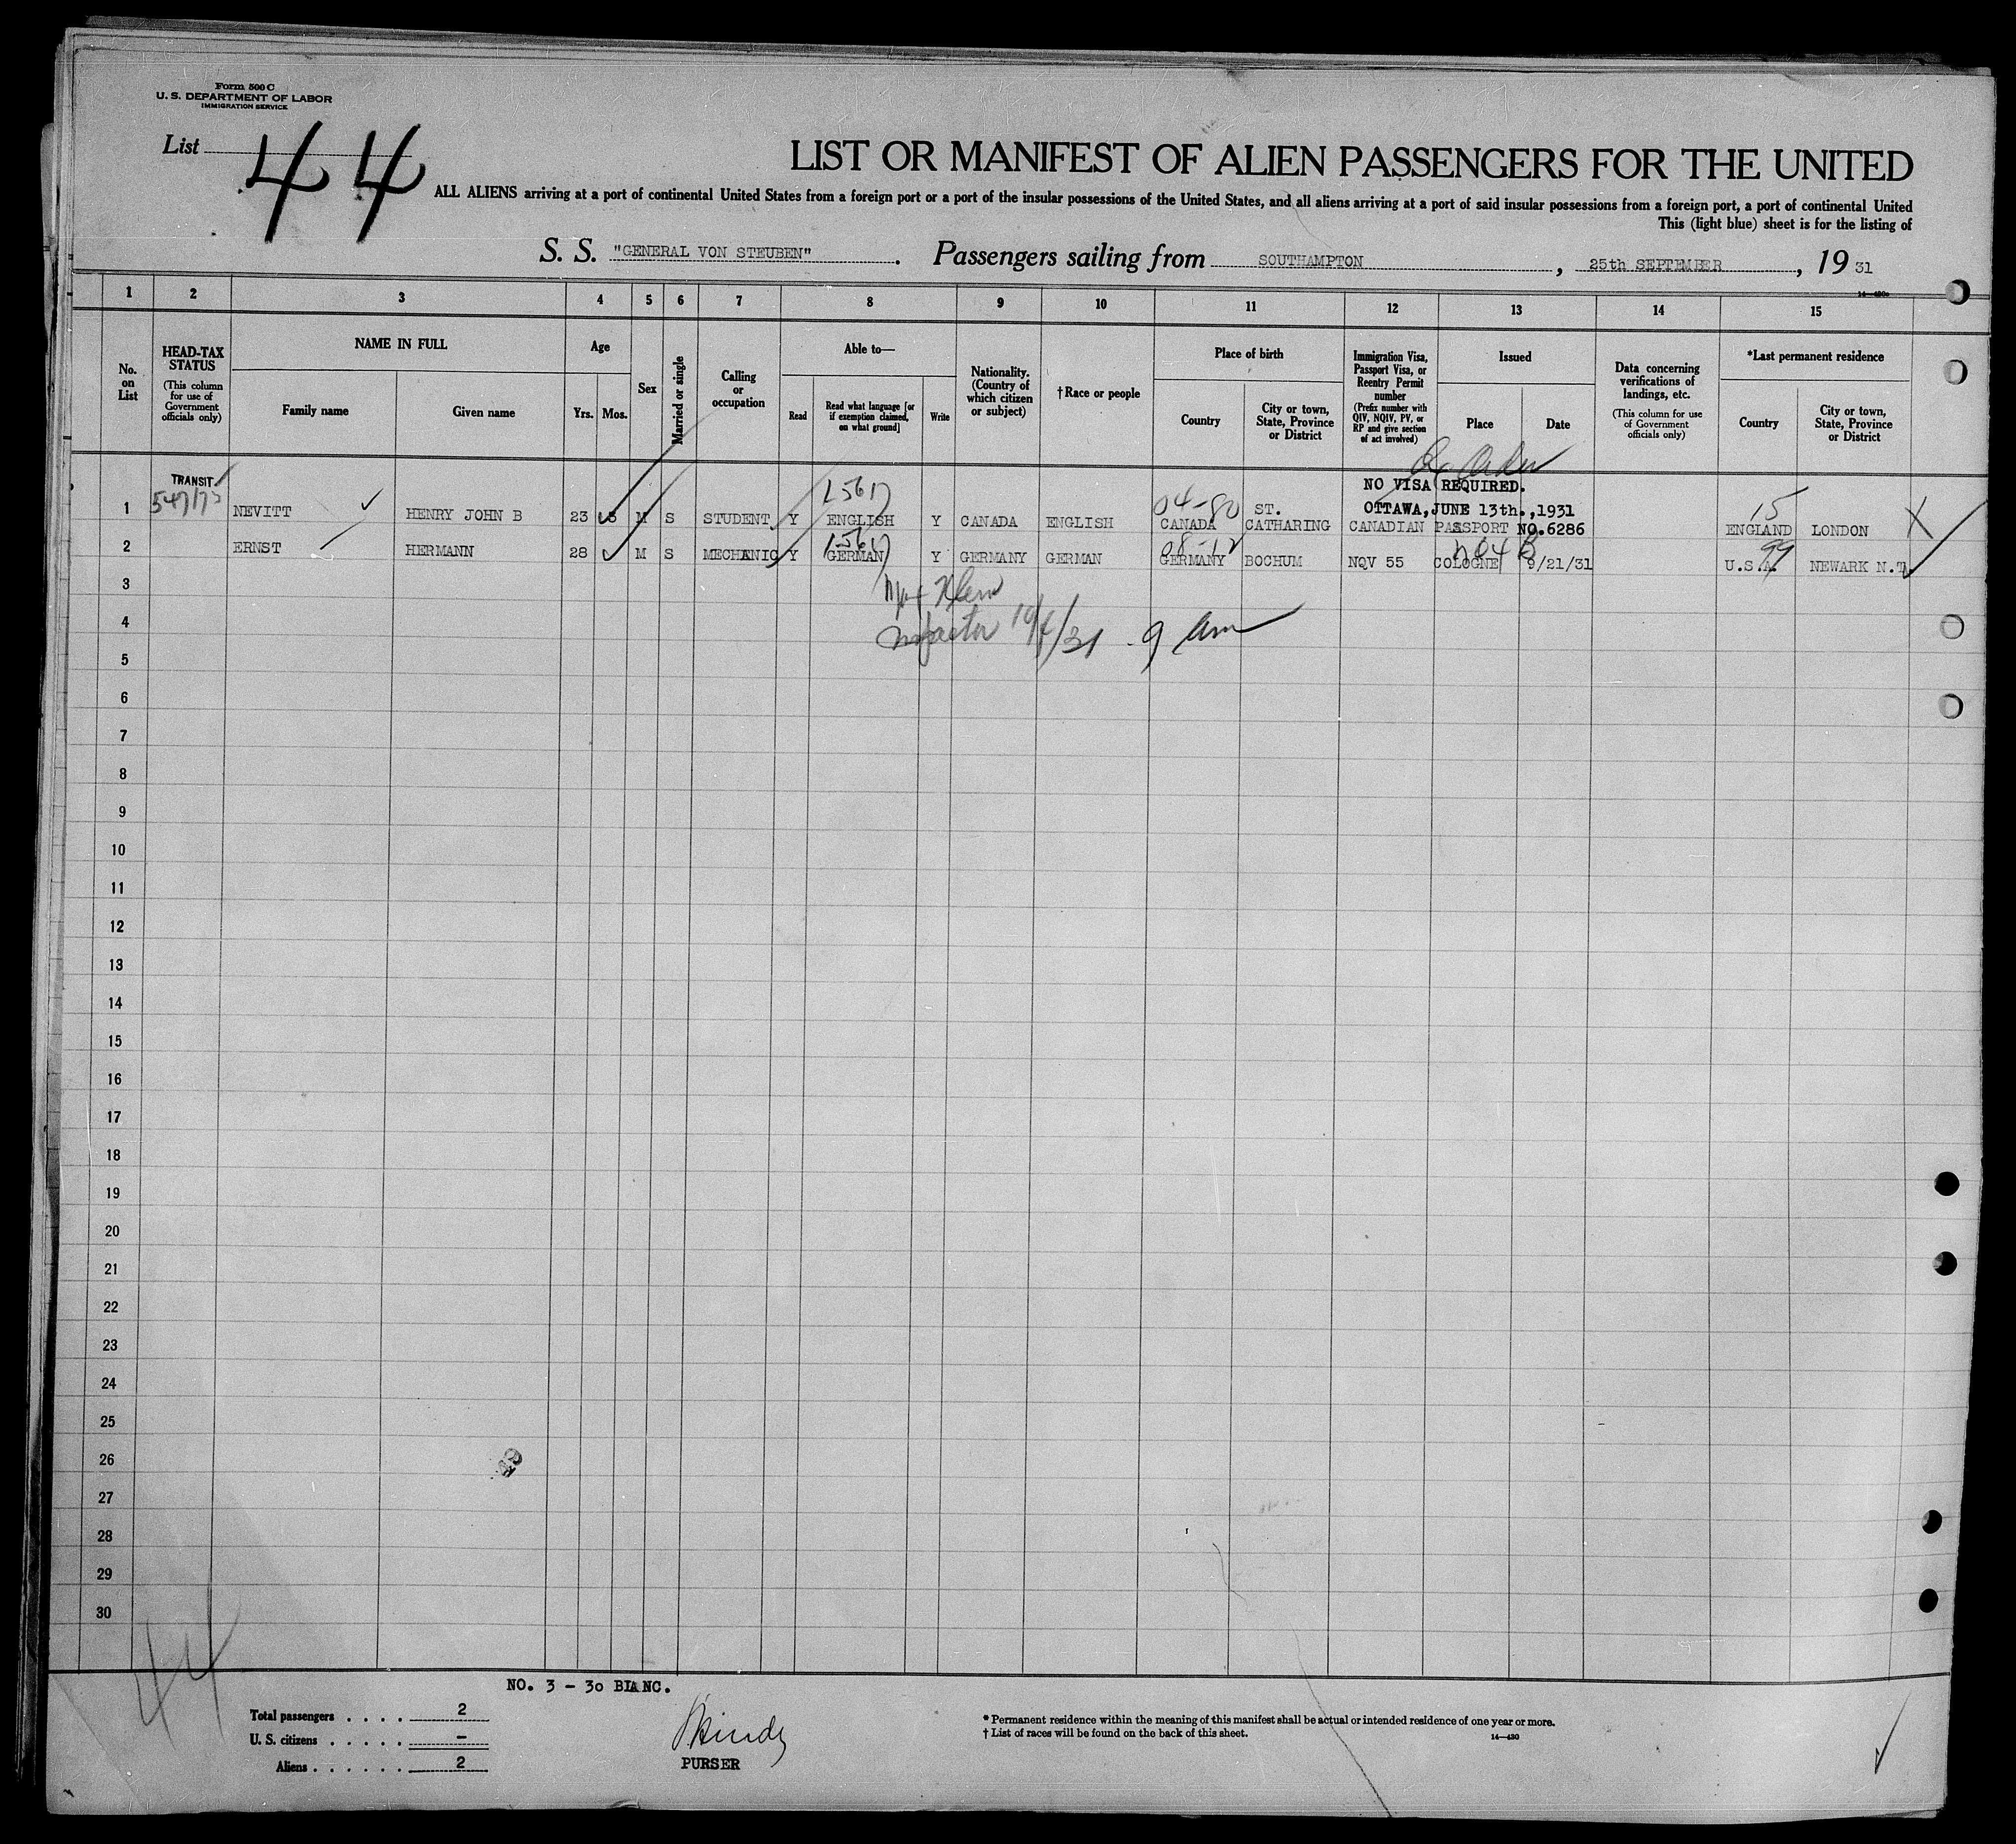 Form 500 C
U. S. DEPARTMENT OF LABOR
IMMIGRATION SERVICE
List 44
LIST OR MANIFEST OF ALIEN PASSENGERS FOR THE UNITED
ALL ALIENS arriving at a port of continental United States from a foreign port or a port of the insular possessions of the United States, and all aliens arriving at a port of said insular possessions from a foreign port, a port of continental United
This (light blue) sheet is for the listing of
S. S. "GENERAL VON STEUBEN". Passengers sailing from SOUTHAMPTON, 25th SEPTEMBER, 19 31
14—430a
1 2 3 4 5 6 7 8 9 10 11 12 13 14 15
No. on List
HEAD-TAX STATUS (This column for use of Government officials only)
NAME IN FULL
Family name
Given name
Age
Yrs. Mos.
Sex
Married or single
Calling or occupation
Able to—
Read
Read what language [or if exemption claimed, on what ground]
Write
Nationality. (Country of which citizen or subject)
†Race or people
Place of birth
Country
City or town, State, Province or District
Immigration Visa, Passport Visa, or Reentry Permit number (Prefix number with QIV, NQIV, PV, or RP and give section of act involved)
Issued
Place
Date
Data concerning verifications of landings, etc. (This column for use of Government officials only)
*Last permanent residence
Country
City or town, State, Province or District
TRANSIT
NO VISA REQUIRED.
04-80 ST. OTTAWA, JUNE 13th., 1931 15
1 NEVITT HENRY JOHN B 23 M S STUDENT Y ENGLISH Y CANADA ENGLISH CANADA CATHARING CANADIAN PASSPORT NO.6286 ENGLAND LONDON X
08-12 99
2 ERNST HERMANN 28 M S MECHANIC Y GERMAN Y GERMANY GERMAN GERMANY BOCHUM NQV 55 COLOGNE 9/21/31 U.S.A. NEWARK N.
3
4
5
6
7
8
9
10
11
12
13
14
15
16
17
18
19
20
21
22
23
24
25
26
27
28
29
30
44
NO. 3 - 30 BLANC.
Total passengers . . . . 2
U. S. citizens . . . . . –
Aliens . . . . . . 2
PURSER
* Permanent residence within the meaning of this manifest shall be actual or intended residence of one year or more.
† List of races will be found on the back of this sheet.
14—430